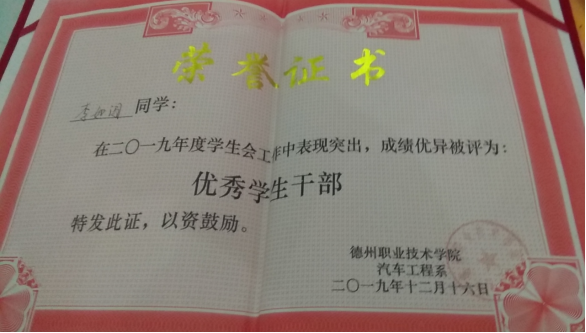 荣誉证书
李 同学：
在二〇一九年度学生会工作中表现突出，成绩优异被评为：
优秀学生干部
特发此证，以资鼓励。
德州职业技术学院
汽车工程系
二〇一九年十二月十六日